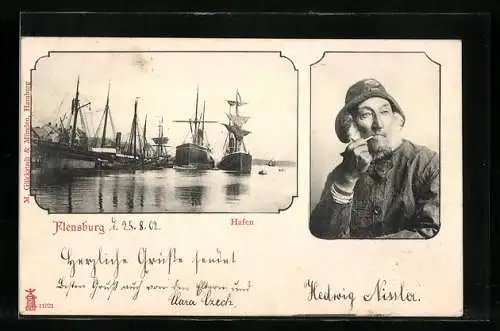 M. Glückstadt & Münden, Hamburg
Flensburg d 25.8.02
Hafen
Herzliche Grüße sendet
Besten Gruß auch von den Eltern und
Clara Czech.
Hedwig Nissler.